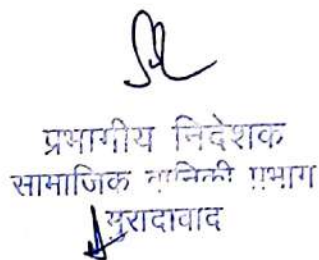 प्रभागीय निदेशक
सामाजिक वानिकी प्रभाग
मुरादावाद